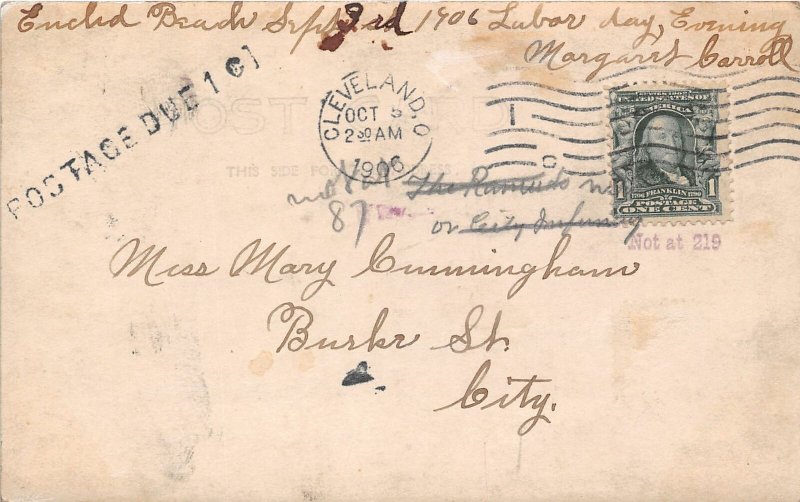 Euclid Beach Sept 3rd 1906 Labor day, Evening
Margaret Carroll
POSTAGE DUE 1 C
POST CARD
THIS SIDE FOR
CLEVELAND, O
OCT 5
2 30 AM
1906
SERIES 1902
UNITED STATES OF
AMERICA
1 1706 FRANKLIN 1790 1
POSTAGE
ONE CENT
87
The
or City Infirmary
Not at 219
Miss Mary Cunningham
Burke St.
City.